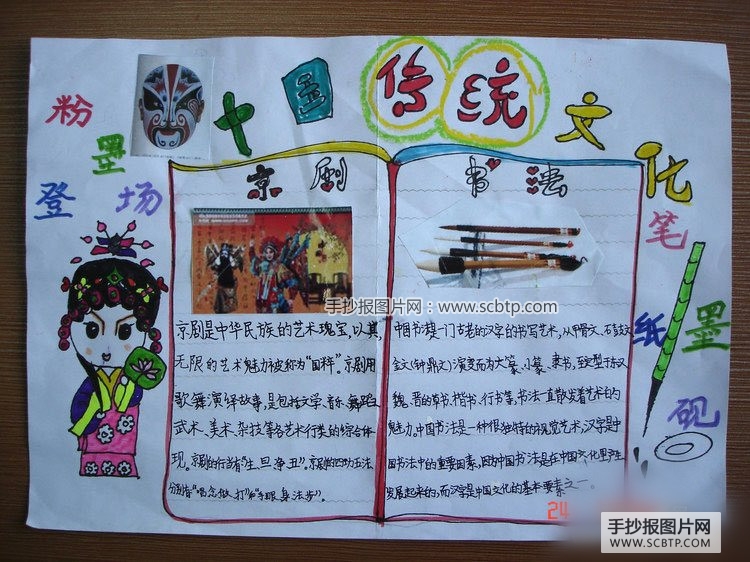 中国传统文化
粉墨登场
京剧
京剧是中华民族的艺术瑰宝,以其
无限的艺术魅力被称为“国粹”。京剧用
歌舞演绎故事,是包括文学、音乐、舞蹈
武术、美术、杂技等各艺术行类的综合体
现。京剧的行当有“生、旦、净、丑”。京剧的四功五法
分别指“唱念做打”和“手眼身法步”。
书法
中国书法是一门古老的汉字的书写艺术,从甲骨文、石鼓文
金文(钟鼎文)演变而为大篆、小篆、隶书,至定型于东汉
魏、晋的草书、楷书、行书等,书法一直散发着艺术的
魅力。中国书法是一种很独特的视觉艺术,汉字是中
国书法中的重要因素,因为中国书法是在中国文化里产生
发展起来的,而汉字是中国文化的基本要素之一。
笔墨纸砚
手抄报图片网:www.scbtp.com
24
手抄报图片网
WWW.SCBTP.COM